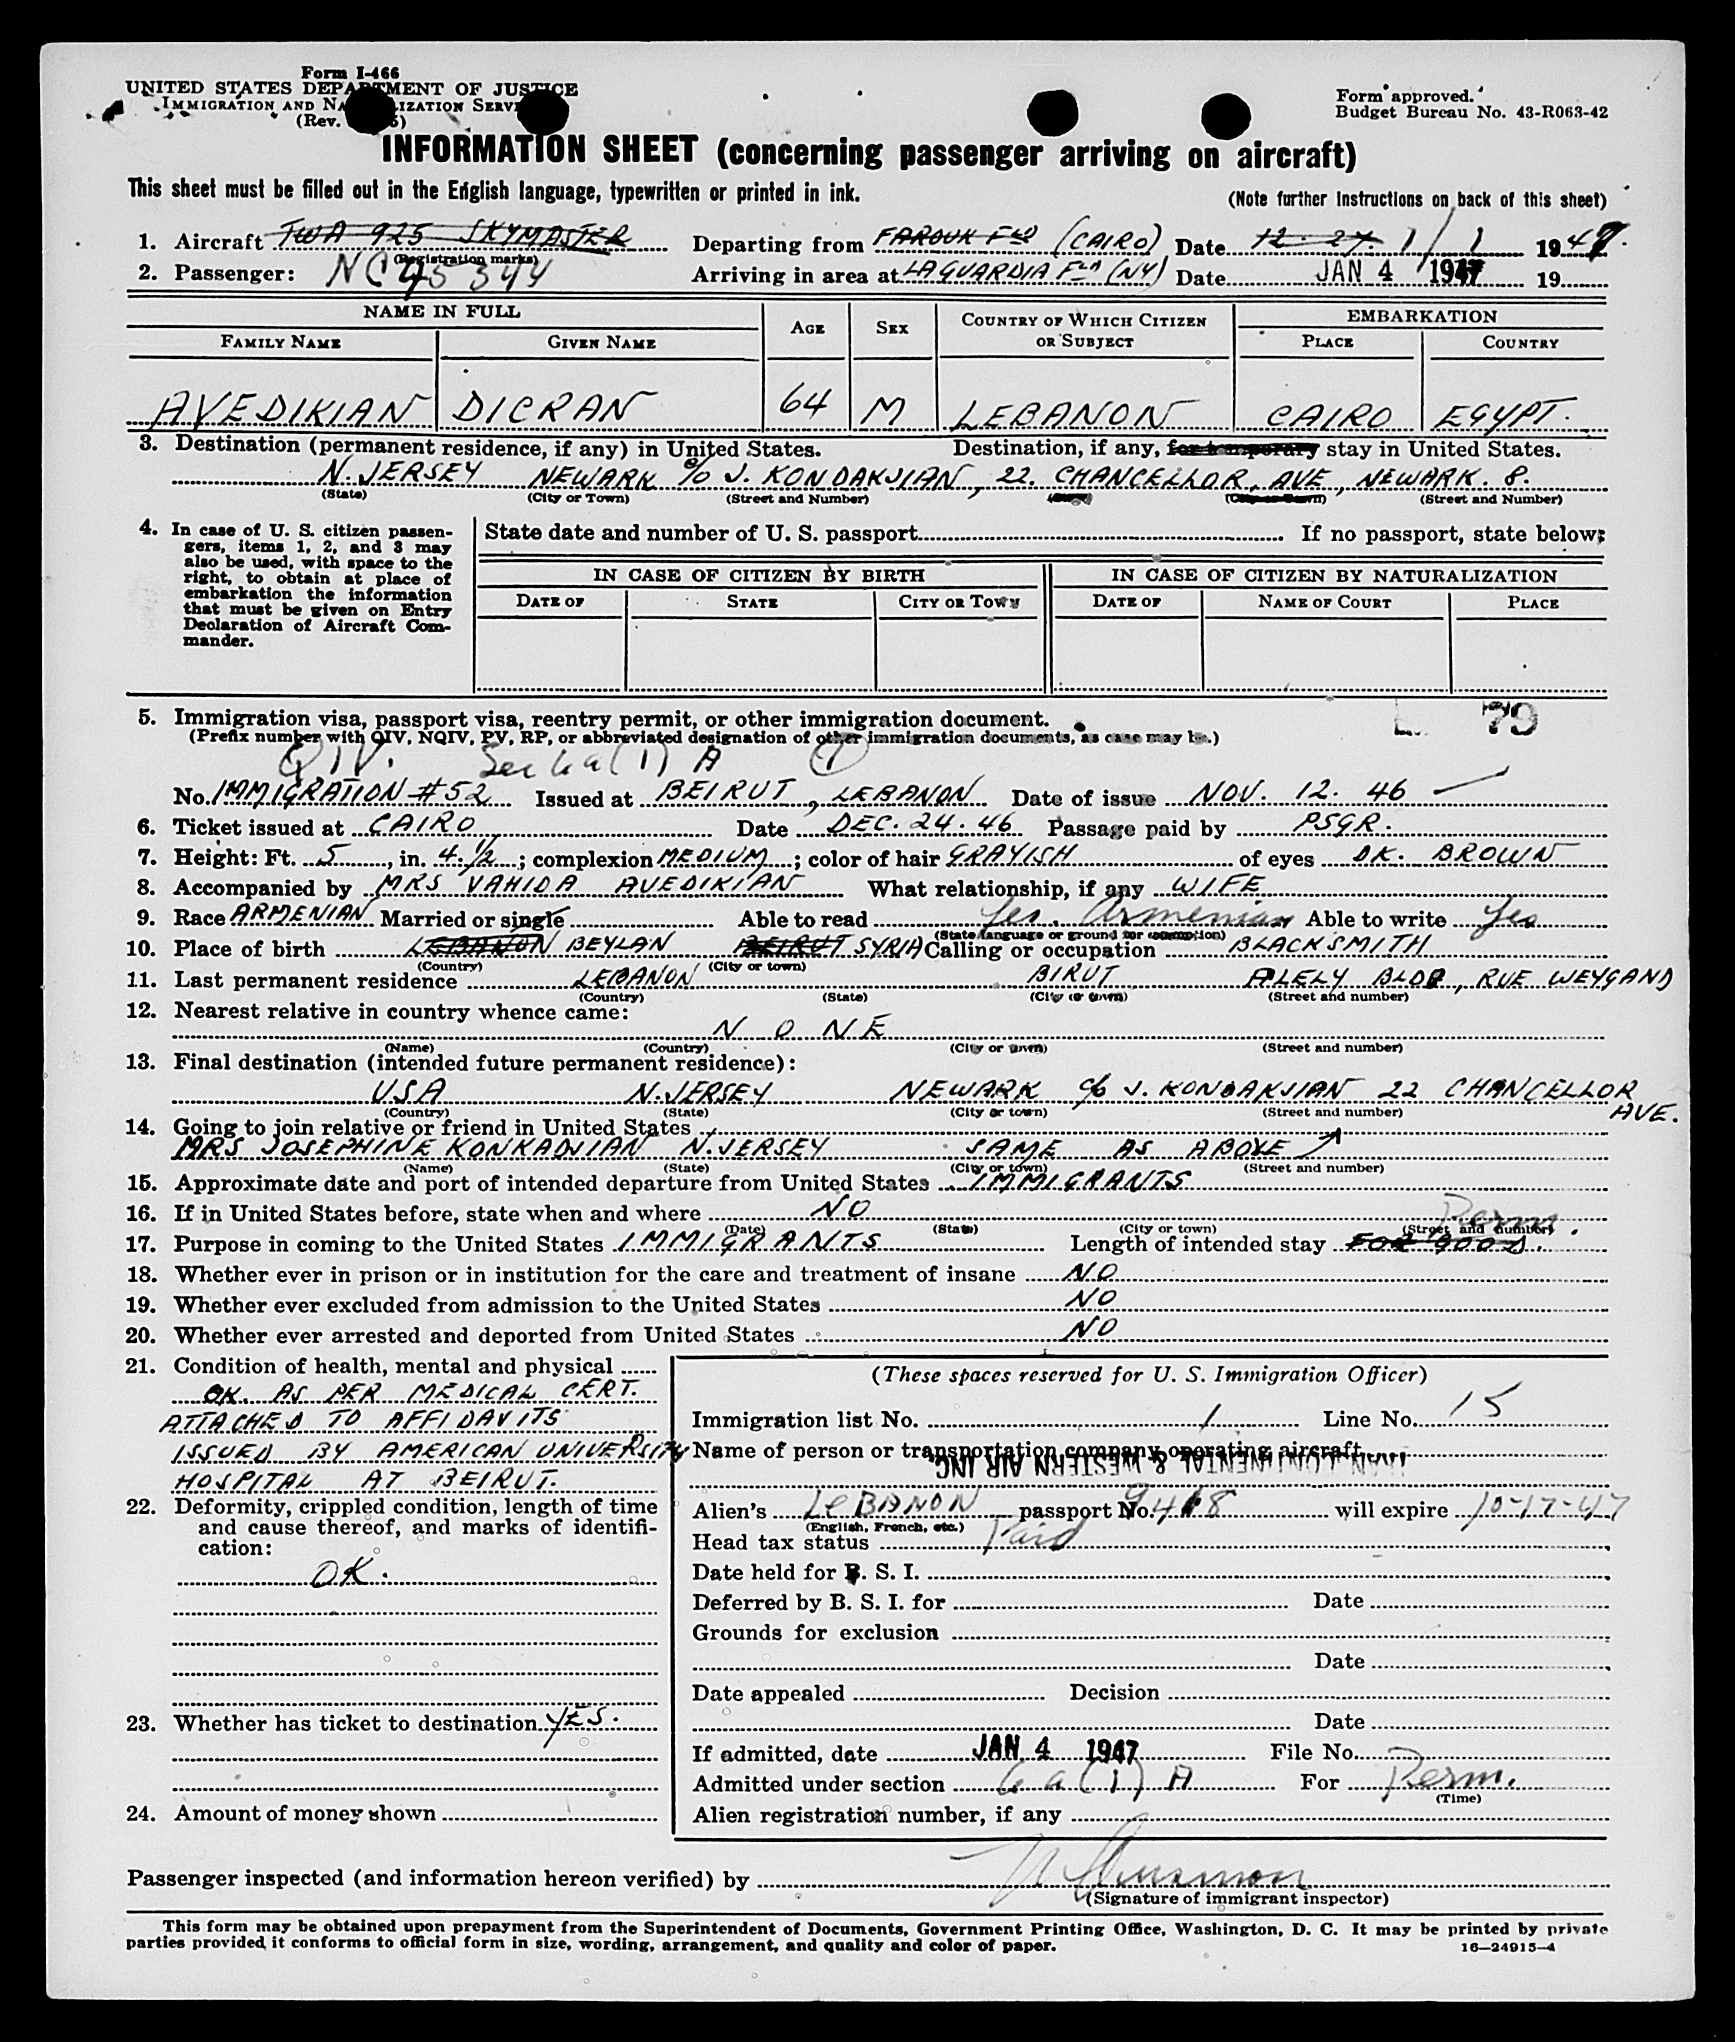 Form I-466
UNITED STATES DEPARTMENT OF JUSTICE
IMMIGRATION AND NATURALIZATION SERVICE
(Rev.
Form approved.
Budget Bureau No. 43-R063-42
INFORMATION SHEET (concerning passenger arriving on aircraft)
This sheet must be filled out in the English language, typewritten or printed in ink.
(Note further instructions on back of this sheet)
1. Aircraft TWA 925 SKYMASTER Departing from FAROUK FLD (CAIRO) Date 12-27. 1/1 1947.
(Registration marks)
2. Passenger: NC 45344 Arriving in area at LAGUARDIA FLD (NY) Date JAN 4 1947 19
NAME IN FULL AGE SEX COUNTRY OF WHICH CITIZEN OR SUBJECT EMBARKATION
FAMILY NAME GIVEN NAME PLACE COUNTRY
AVEDIKIAN DICRAN 64 M LEBANON CAIRO EGYPT.
3. Destination (permanent residence, if any) in United States. Destination, if any, for temporary stay in United States.
N. JERSEY NEWARK c/o J. KONDAKJIAN, 22. CHANCELLOR, AVE, NEWARK. 8.
(State) (City or Town) (Street and Number) (State) (City or Town) (Street and Number)
4. In case of U. S. citizen passengers, items 1, 2, and 3 may also be used, with space to the right, to obtain at place of embarkation the information that must be given on Entry Declaration of Aircraft Commander.
State date and number of U. S. passport If no passport, state below:
IN CASE OF CITIZEN BY BIRTH IN CASE OF CITIZEN BY NATURALIZATION
DATE OF STATE CITY OR TOWN DATE OF NAME OF COURT PLACE
5. Immigration visa, passport visa, reentry permit, or other immigration document.
79
(Prefix number with QIV, NQIV, PV, RP, or abbreviated designation of other immigration documents, as case may be.)
QIV. Sec 6a(1) A 1
No. IMMIGRATION #52 Issued at BEIRUT, LEBANON Date of issue NOV. 12. 46
6. Ticket issued at CAIRO Date DEC. 24. 46 Passage paid by PSGR.
7. Height: Ft. 5, in. 4.1/2; complexion MEDIUM; color of hair GRAYISH of eyes DK. BROWN
8. Accompanied by MRS VAHIDA AVEDIKIAN What relationship, if any WIFE
9. Race ARMENIAN Married or single Able to read Yes. Armenian Able to write Yes
(State language or ground for exemption)
10. Place of birth LEBANON BEYLAN BEIRUT SYRIA Calling or occupation BLACKSMITH
(Country) (City or town)
11. Last permanent residence LEBANON BIRUT ALELY BLDG, RUE WEYGAND
(Country) (State) (City or town) (Street and number)
12. Nearest relative in country whence came:
NONE
(Name) (Country) (City or town) (Street and number)
13. Final destination (intended future permanent residence):
USA N. JERSEY NEWARK c/o J. KONDAKJIAN 22 CHANCELLOR AVE.
(Country) (State) (City or town) (Street and number)
14. Going to join relative or friend in United States
MRS JOSEPHINE KONKADJIAN N. JERSEY SAME AS ABOVE
(Name) (State) (City or town) (Street and number)
15. Approximate date and port of intended departure from United States IMMIGRANTS
16. If in United States before, state when and where NO
(Date) (State) (City or town) (Street and number)
17. Purpose in coming to the United States IMMIGRANTS Length of intended stay FOR GOOD. Perm.
18. Whether ever in prison or in institution for the care and treatment of insane NO
19. Whether ever excluded from admission to the United States NO
20. Whether ever arrested and deported from United States NO
21. Condition of health, mental and physical
OK. AS PER MEDICAL CERT.
ATTACHED TO AFFIDAVITS
ISSUED BY AMERICAN UNIVERSITY
HOSPITAL AT BEIRUT.
22. Deformity, crippled condition, length of time and cause thereof, and marks of identification:
OK.
23. Whether has ticket to destination YES.
24. Amount of money shown
(These spaces reserved for U. S. Immigration Officer)
Immigration list No. 1 Line No. 15
Name of person or transportation company operating aircraft
TRANSCONTINENTAL & WESTERN AIR INC.
Alien's LEBANON passport No. 9418 will expire 10-17-47
(English, French, etc.)
Head tax status Paid
Date held for B. S. I.
Deferred by B. S. I. for Date
Grounds for exclusion
Date
Date appealed Decision
Date
If admitted, date JAN 4 1947 File No.
Admitted under section 6a(1) A For Perm.
(Time)
Alien registration number, if any
Passenger inspected (and information hereon verified) by
(Signature of immigrant inspector)
This form may be obtained upon prepayment from the Superintendent of Documents, Government Printing Office, Washington, D. C. It may be printed by private
parties provided it conforms to official form in size, wording, arrangement, and quality and color of paper.
16—24915-4